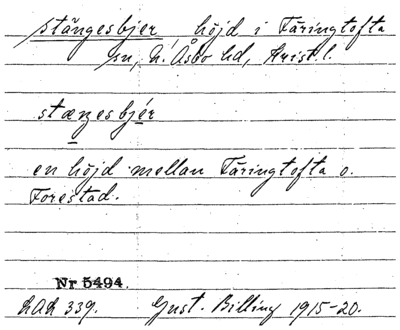 stångesbjer, höjd i Färingtofta
sn, N. Åsbo hd, Krist. l.
stæŋesbjér
en höjd mellan Färingtofta o.
Forestad.
Nr 5494.
LAL 339. Gust. Billing 1915-20.